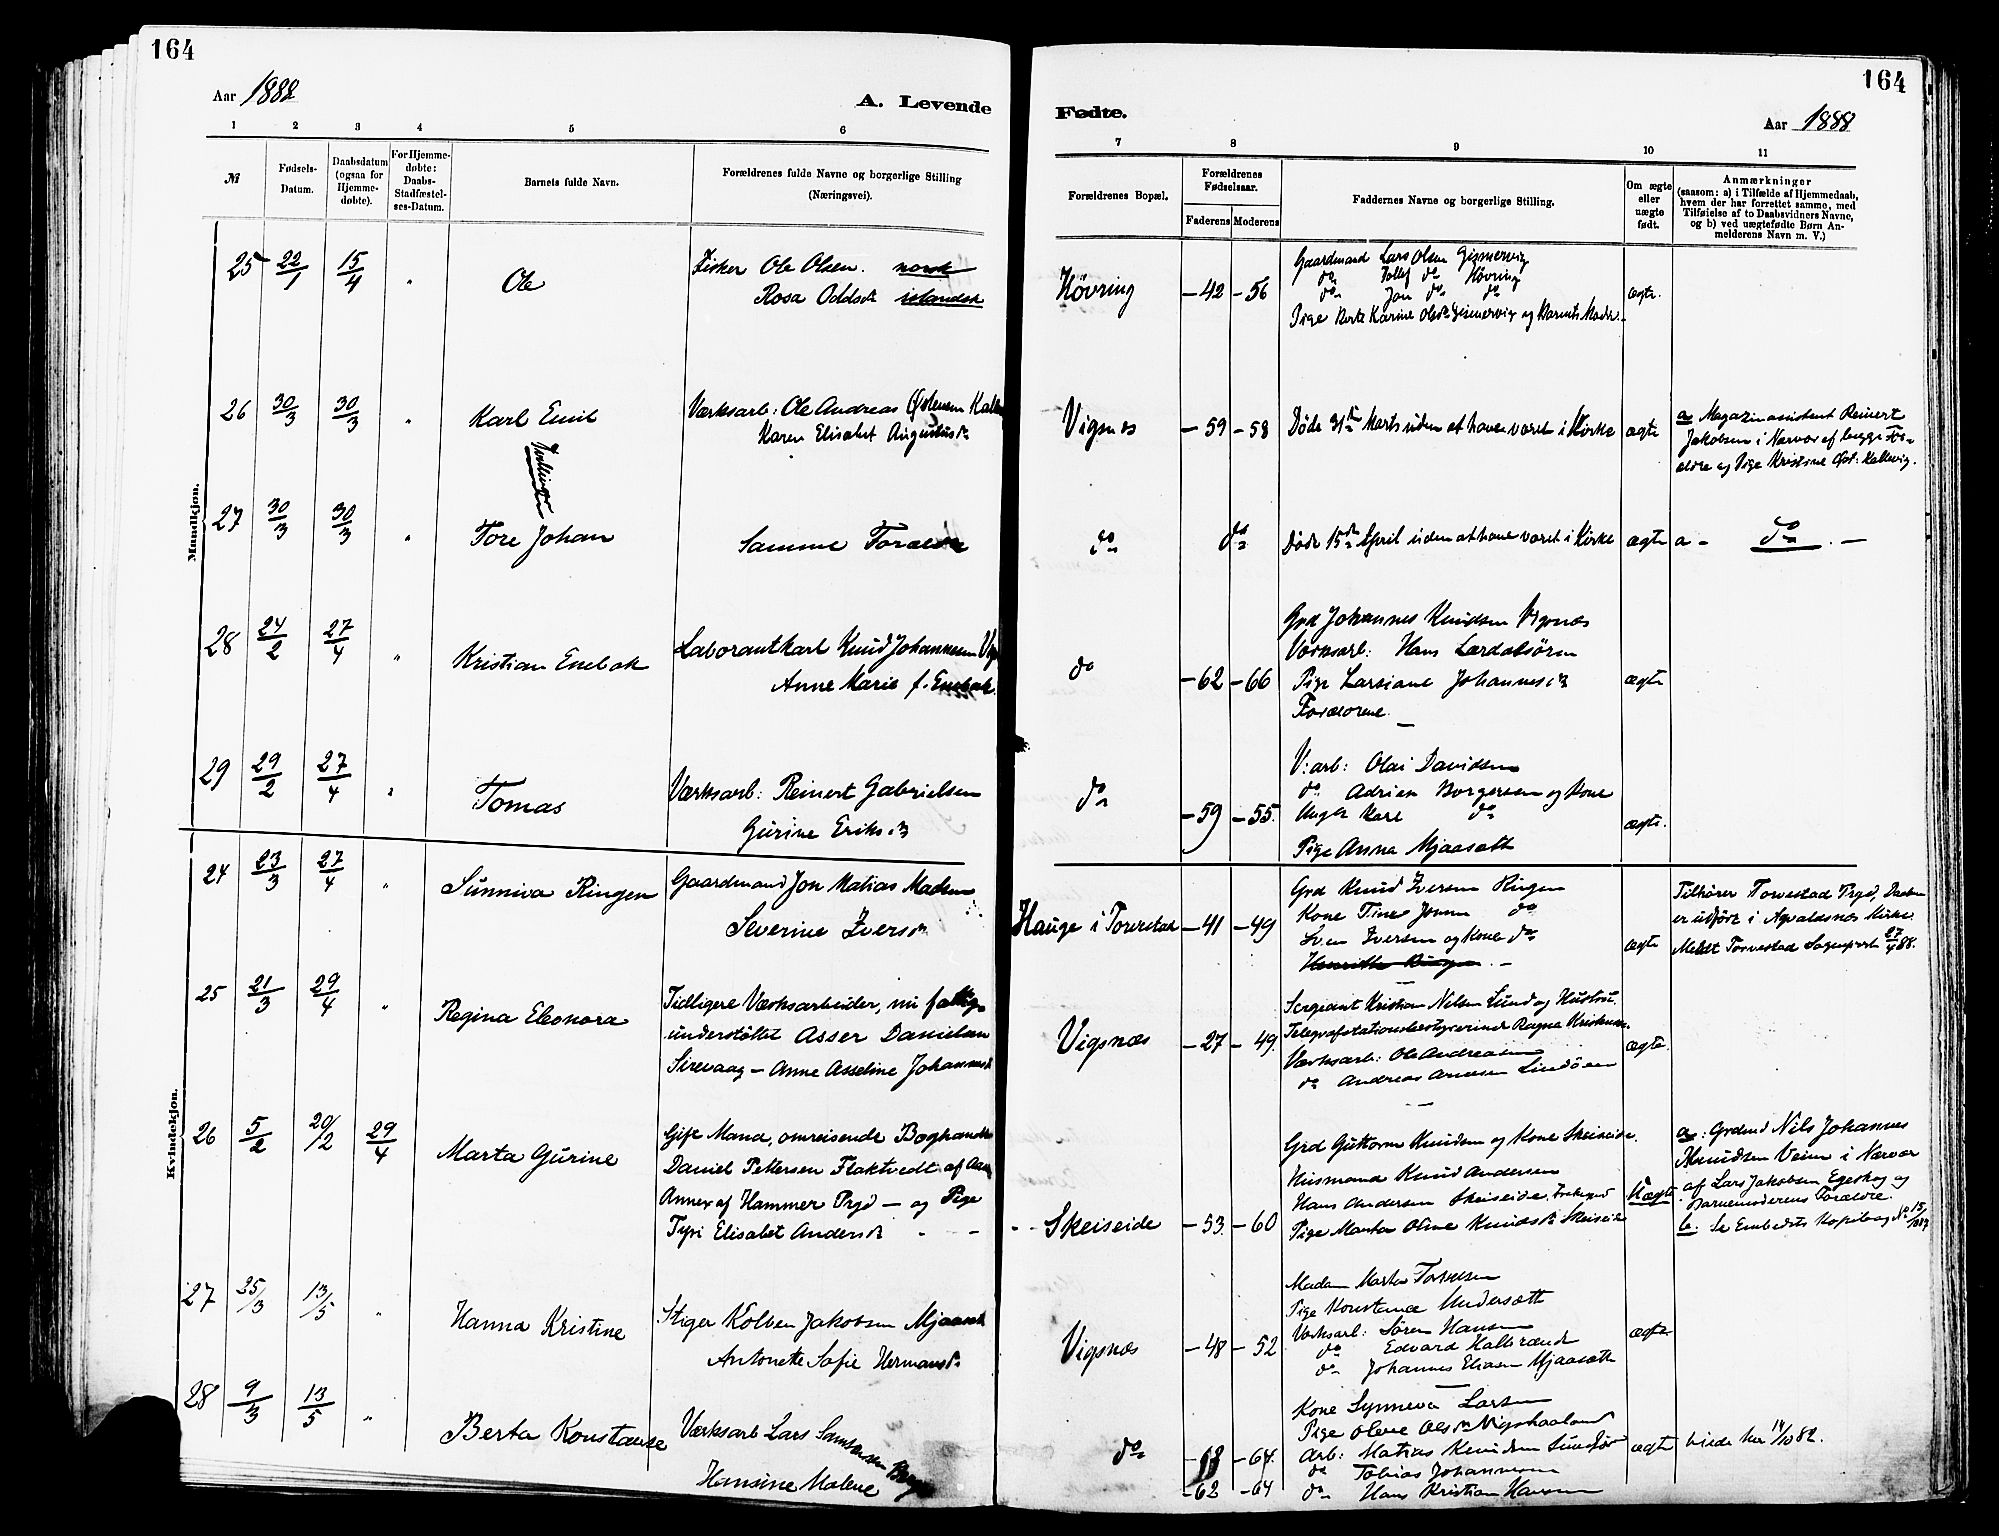 164
Aar 1888
A. Levende
1 2 3 4 5 6
№
Fødsels-
Datum.
Daabsdatum
(ogsaa for
Hjemme-
døbte).
For Hjemme-
døbte:
Daabs-
Stadfæstel-
ses-Datum.
Barnets fulde Navn.
Forældrenes fulde Navne og borgerlige Stilling
(Næringsvei).
Mandkjøn.
25 22/1 15/4 " Ole
Fisker Ole Olsen. norsk
Rosa Oddsdr islandsk
26 30/3 30/3 " Karl Emil
Værksarb: Ole Andreas
Karen Elisabet Augustusdr
Tvillinger
27 30/3 30/3 " Tore Johan
Samme Forældre
28 24/2 27/4 " Kristian Enebak
Laborantkarl Knud Johannesen
Anne Marie f. Enebak
29 29/2 27/4 " Tomas
Værksarb: Reinert Gabrielsen
Gurine Eriksdr
Kvindekjøn.
24 23/3 27/4 " Sunniva Ringen
Gaardmand Jon Matias Madsen
Severine Iversdr
25 21/3 29/4 " Regina Eleonora
Tidligere Værksarbeider, nu fattig-
understøttet Asser Danielsen
Sirevaag – Anne Asseline Johannesdr
26 5/2 20/2 29/4 Marta Gurine
Gift Mand, omreisende Boghandler
Daniel Pettersen Flaktvedt af
Annex af Hammer Prgd – og Pige
Tyri Elisabet Andersdr - -
27 25/3 13/5 " Hanna Kristine
Stiger Kolben Jakobsen
Antonette Sofie Hermansdr
28 9/3 13/5 " Berta Konstanse
Værksarb Lars Samsonsen
Hansine Malene
164
Fødte.
Aar 1888
7 8 9 10 11
Forældrenes Bopæl.
Forældrenes
Fødselsaar.
Faderens Moderens
Faddernes Navne og borgerlige Stilling.
Om ægte
eller
uægte
født.
Anmærkninger
(saasom: a) i Tilfælde af Hjemmedaab,
hvem der har forrettet samme, med
Tilføielse af to Daabsvidners Navne,
og b) ved uægtefødte Børn An-
melderens Navn m. V.)
Høvring – 42 – 56 ægte.
Gaardmand Lars Olsen Gismervig
do Tollef do Høvring
do Jon do do
Pige Berte Karine Olsdr Gismervig og Barnets Moder.
Vigsnes – 59 – 58
Døde 31te Marts uden at have været i Kirke
ægte
a Magazinassistent Reinert
Jakobsen i Nærvær af begge For-
ældre og Pige Kristine Kallevig.
do do
Døde 15de April uden at have været i Kirke
ægte a – do –
do – 62 – 66 ægte
Grd Johannes Knudsen Vigsnes
Værksarb: Hans Lærdalsøren
Pige Larsiane Johannesdr
Forældrene. –
do – 59 – 55. ægte.
V:arb: Olai Davidsen
do Adrien Borgersen og Kone
Ungk Kare do
Pige Anna Mjaasæth
Hauge i Torvestad – 41 – 49 ægte
Grd Knud Iversen Ringen
Kone Tine Jonsen do
Sven Iversen og Kone do
Henriette Ringen –
Tilhører Torvestad Prgd, Daaben
er udført i Agvaldsnes Kirke.
Meldt Torvestad Sogneprest 27/4 88.
Vigsnæs – 27 – 49. ægte.
Sergeant Kristian Nilsen Lund og Hustru.
Telegrafstationsbestyrerinde Ragna
Værksarb: Ole Andreasen
do Andreas Arnesen Lindøen
–
Skeiseide – 53. – 60 Uægte
Grd Guttorm Knudsen og Kone Skeiseide.
Husmand Knud Andersen
Hans Andersen Skeiseide,
Pige Marta Oline Knudsdr Skeiseide
a: Grdmd Nils Johannes
Knudsen Veien i Nærvær
af Lars Jakobsen Egeskog og
Barnemoderens Forældre.
b. Se Embedets Kopibog No 15/1887
Vigsnæs – 48 – 52 ægte
Madam Marta Torsen
Pige Konstance Undersæth
Værksarb: Søren Hansen
do Edvard
do Johannes Eliasen Mjaasæth
do – 64. ægte
– 62 – 64
Kone Synneva Larsen
Pige Olene Olsdr Vigshaaland
Arb: Matias Knudsen
do Tobias Johannesen
do Hans Kristian Hansen
viede her 14/10 82.